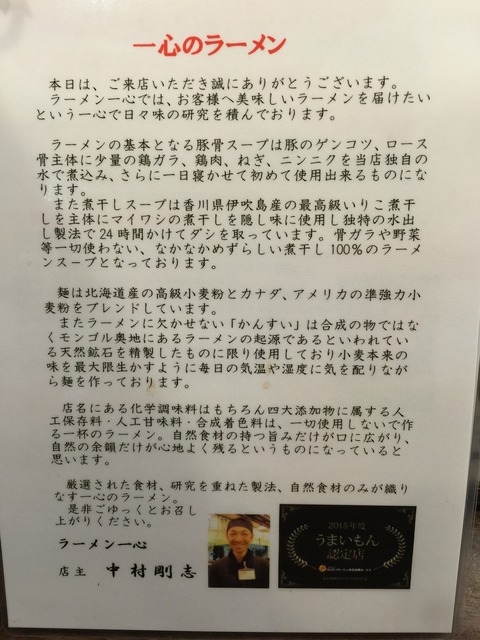 一心のラーメン
本日は、ご来店いただき誠にありがとうございます。
ラーメン一心では、お客様へ美味しいラーメンを届けたい
という一心で日々味の研究を積んでおります。
ラーメンの基本となる豚骨スープは豚のゲンコツ、ロース
骨主体に少量の鶏ガラ、鶏肉、ねぎ、ニンニクを当店独自の
水で煮込み、さらに一日寝かせて初めて使用出来るものにな
ります。
また煮干しスープは香川県伊吹島産の最高級いりこ煮干
しを主体にマイワシの煮干しを隠し味に使用し独特の水出
し製法で24時間かけてダシを取っています。骨ガラや野菜
等一切使わない、なかなかめずらしい煮干し100%のラーメ
ンスープとなっております。
麺は北海道産の高級小麦粉とカナダ、アメリカの準強力小
麦粉をブレンドしています。
またラーメンに欠かせない「かんすい」は合成の物ではな
くモンゴル奥地にあるラーメンの起源であるといわれてい
る天然鉱石を精製したものに限り使用しており小麦本来の
味を最大限生かすように毎日の気温や湿度に気を配りなが
ら麺を作っております。
店名にある化学調味料はもちろん四大添加物に属する人
工保存料・人工甘味料・合成着色料は、一切使用しないで作
る一杯のラーメン。自然食材の持つ旨みだけが口に広がり、
自然の余韻だけが心地よく残るというものになっていると
思います。
厳選された食材、研究を重ねた製法、自然食材のみが織り
なす一心のラーメン。
是非ごゆっくとお召し
上がりください。
ラーメン一心
店主 中村剛志
2015年度
うまいもん
認定店